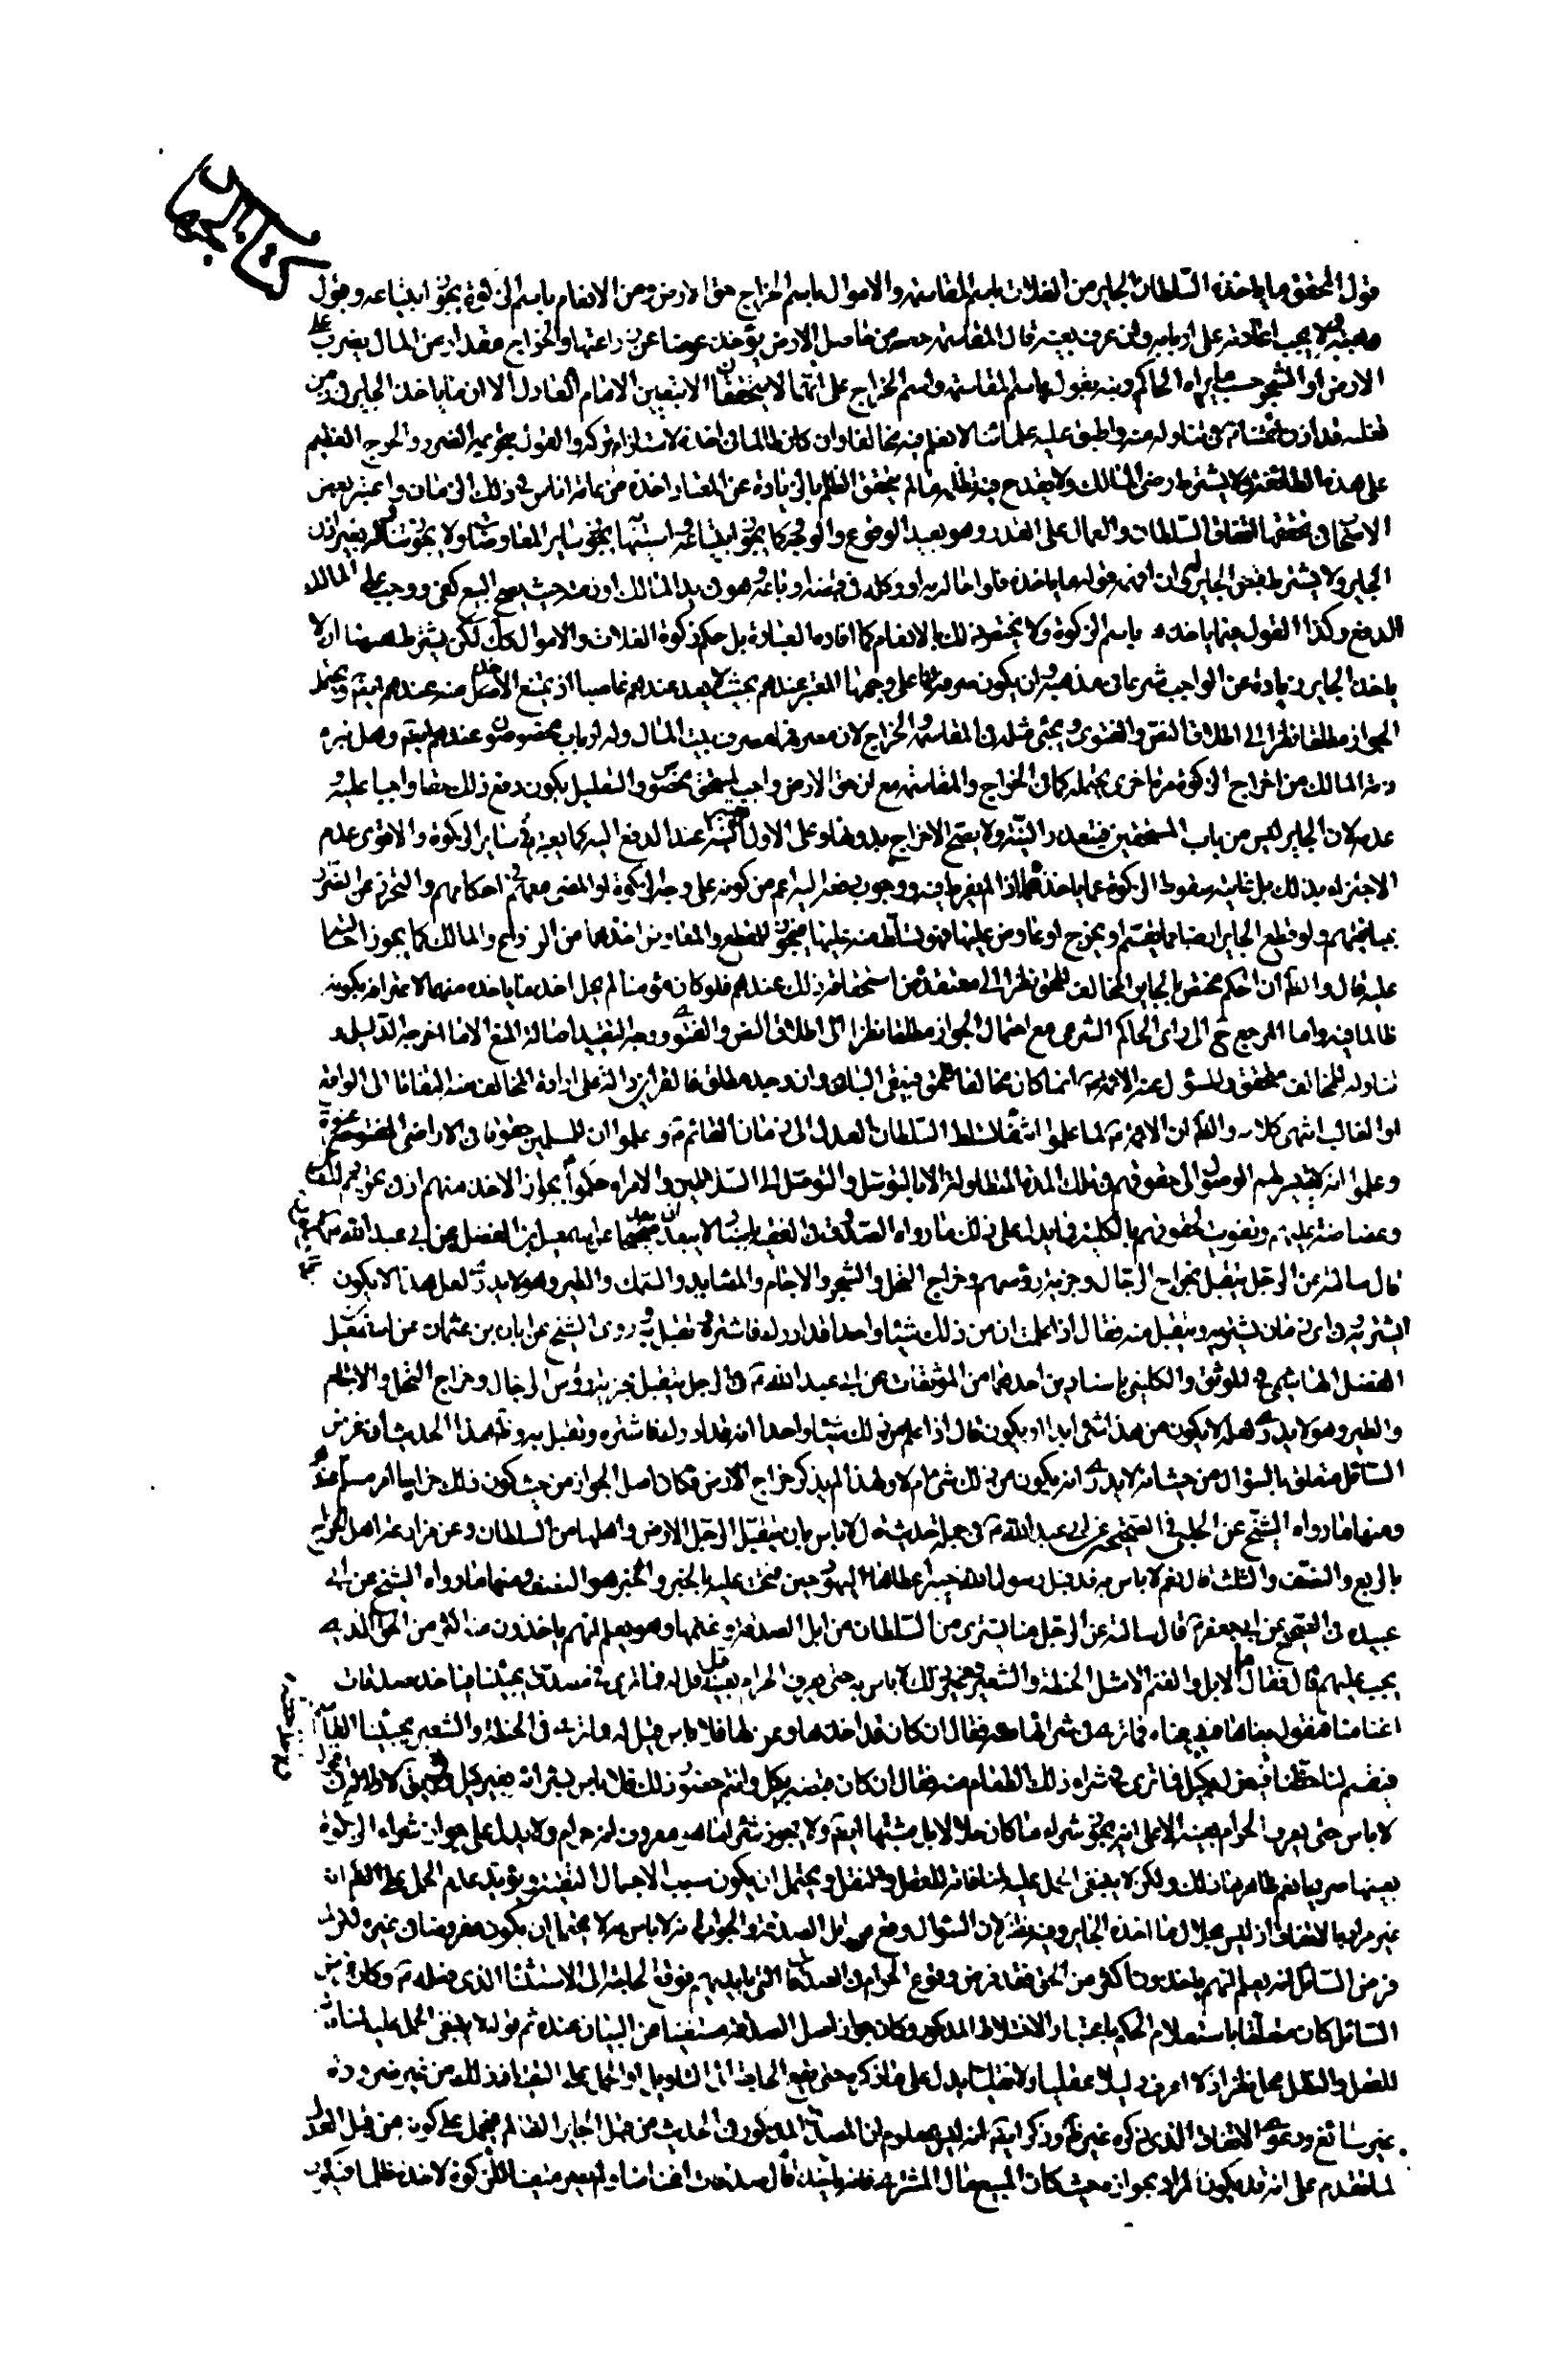 كتاب الجهاد
قول المحقق ما ياخذه السلطان الجاير من الغلات باسم المقاسمة والاموال باسم الخراج عن حق الارض ومن الانعام باسم الزكوة يجوز ابتياعه وقبول
هبته ولا يجب اعادته على اربابه وان عرف بعينه قال المقاسمة حصة من حاصل الارض يؤخذ عوضا عن زراعتها والخراج مقدار من المال يضرب على
الارض او الشجر حسب ما يراه الحاكم ونبه بقوله باسم المقاسمة واسم الخراج على انهما لا يتحققان الا بتعيين الامام العادل الا ان ما ياخذه الجاير في زمن
تغلبه قد اذن ائمتنا ع في تناوله منه واطبق عليه علمائنا لا نعلم فيه مخالفا وان كان ظالما في اخذه لاستلزام تركه والقول بتحريمه الضرر والحرج العظيم
على هذه الطائفة ولا يشترط رضى المالك ولا يقدح فيه تظلمه ما لم يتحقق الظلم بالزيادة عن المعتاد اخذه من عامة الناس في ذلك الزمان واعتبر بعض
الاصحاب في تحققها اتفاق السلطان والعمال على القدر وهو بعيد الوقوع والوجه وكما يجوز ابتياعه واستيهابه يجوز ساير المعاوضات ولا يجوز تناوله بغير اذن
الجاير ولا يشترط قبض الجاير له وان افهمه قوله ما ياخذه فلو احاله به او وكله في قبضه او باعه وهو في يد المالك او ذمته حيث يصح البيع كفى ووجب على المالك
الدفع وكذا القول فيما ياخذه باسم الزكوة ولا يختص ذلك بالانعام كما افاده العبارة بل حكم زكوة الغلات والاموال كذلك لكن يشترط هيهنا ان لا
ياخذ الجاير زيادة عن الواجب شرعا في مذهبه وان يكون صرفه لها على وجهها المعتبر عندهم بحيث لا يعد عندهم غاصبا اذ يمتنع الاخذ منه عندهم ايضا ويحتمل
الجواز مطلقا نظرا الى اطلاق النص والفتوى ويجئ مثله في المقاسمة والخراج لان مصرفهما مصرف بيت المال وله ارباب مخصوصون عندهم ايضا وهل تبرء
ذمة المالك من اخراج الزكوة مرة اخرى يحتمله كما في الخراج والمقاسمة مع ان حق الارض واجب لمستحق مخصوص والتعليل بكون دفع ذلك حقا واجبا عليه
عدمه لان الجاير ليس من باب المستحقين فيتعذر النية ولا يصح الاخراج بدونها وعلى الاول تعتبر النية عند الدفع اليه كما يعتبر في ساير الزكوة والاقوى عدم
الاجتزاء بذلك بل غايته سقوط الزكوة عما ياخذه اذا لم يفرط فيه ووجوب دفعه اليه اعم من كونه على وجه الزكوة او المضى معهم في احكامهم والتحرز عن الضرر
بمباينتهم ولو قطع الجاير ارضا مما يقسم او يخرج او عاوض عليها فهو تسلط منه عليها فيجوز للمقطع والمعاوض اخذهما من الزارع والمالك كما يجوز احالته
عليه قال والظ ان الحكم مختص بالجاير المخالف للحق نظرا الى معتقده من استحقاقه ذلك عندهم فلو كان مؤمنا لم يحل اخذ ما ياخذه منهما لاعترافه بكونه
ظالما فيه وانما المرجع ح الى راى الحاكم الشرعي مع احتمال الجواز مطلقا نظرا الى اطلاق النص والفتوى ووجه التقييد اصالة المنع الا ما اخرجه الدليل و
تناوله للمخالف متحقق والمسؤل عنه الائمة ع انما كان مخالفا للحق فيبقى الباقي وان وجد مطلق فالقراين دالة على ارادة المخالف منه التفاتا الى الواقع
او الغالب انتهى كلامه والظ ان الائمة ع لما علموا انتفاء تسلط السلطان العدل الى زمان القائم ع وعلموا ان للمسلمين حقوقا في الاراضى المفتوحة عنوة
وعلموا انه لا يتيسر لهم الوصول الى حقوقهم في تلك المدة المتطاولة الا بالتوسل والتوصل الى السلاطين والامراء حكموا بجواز الاخذ منهم اذ في تحريم ذلك
وغضاضة عليهم وتفويت لحقوقهم بالكلية ويدل على ذلك ما رواه الصدوق في الفقيه باسناد لا يبعد ان يعد صحيحا عن اسمعيل بن الفضل عن ابي عبد الله ع
قال سالته عن الرجل يتقبل بخراج الرجال وجزية رؤسهم وخراج النخل والشجر والاجام والمصايد والسمك والطير وهو لا يدرى لعل هذا لا يكون
ايشتريه وفي اي زمان يشتريه ويتقبل منه فقال اذا علمت ان من ذلك شيئا واحدا قد ادرك فاشتره وتقبل به وروى الشيخ عن ابان بن عثمان عن اسمعيل بن
الفضل الهاشمي في الموثق والكليني باسنادين احدهما من الموثقات عن ابي عبد الله ع في الرجل يتقبل بجزية رؤس الرجال وخراج النخل والاجام
والطير وهو لا يدرى لعله لا يكون من هذا شئ ابدا او يكون قال اذا علم من ذلك شيئا واحدا انه قد ادرك فاشتره وتقبل به وظ هذا الحديث ان غرض
السائل متعلق بالسؤال من حيث انه لا يدرى انه يكون من ذلك شئ ام لا ولهذا لم يذكر خراج الارض فكان اصل الجواز من حيث كون ذلك خراجيا امر مسلم عنده
ومنها ما رواه الشيخ عن الحلبي في الصحيح عن ابي عبد الله ع في جملة حديث قال لا باس بان يتقبل الرجل الارض واهلها من السلطان وعن مزارعة اهل الخراج
بالربع والنصف والثلث قال نعم لا باس به قد قبل رسول الله خيبر اعطاها اليهود حين فتحت عليه بالخبر والخبر هو النصف ومنها ما رواه الشيخ عن ابي
عبيده في الصحيح عن ابي جعفر ع قال سالته عن الرجل منا يشترى من السلطان من ابل الصدقة وغنمها وهو يعلم انهم ياخذون منهم اكثر من الحق الذي
يجب عليهم قال فقال ما الابل والغنم الا مثل الحنطة والشعير وغير ذلك لا باس به حتى يعرف الحرام بعينه قيل له فما ترى في مصدق يجيئنا فياخذ صدقات
اغنامنا فنقول بعناها فيبيعناها فما ترى في شرائها منه فقال ان كان قد اخذها وعزلها فلا باس قيل له فما ترى في الحنطة والشعير يجيئنا القاسم
فيقسم لنا حظنا وياخذ حظه فيعزله بكيل فما ترى في شراء ذلك الطعام منه فقال ان كان قبضه بكيل وانتم حضور ذلك فلا باس بشرائه بغير كيل
لا باس حتى يعرف الحرام بعينه الا على انه يجوز شراء ما كان حلالا بل مشتبها ايضا ولا يجوز شراء ما هو معروف انه حرام ولا يدل على جواز شراء الزكوة
بعينها صريحا نعم ظاهرها ذلك ولكن لا ينبغي الحمل عليه لمنافاته للعقل والنقل ويحتمل ان يكون سبب الاجمال التقية ويؤيد عدم الحمل على الظ انه
غير مراد بالاتفاق اذ ليس بحلال ما اخذه الجاير وفيه نظر لان السؤال وقع عن ابل الصدقة والجواب انه لا باس به لا يحتمل ان يكون مفروضا في غيره لكن لما
فرض السائل انه يعلم انهم ياخذون اكثر من الحق فقد فرض وقوع الحرام في الصدقات التي بايديهم فوقع الحاجة الى الاستثناء الذي فعله ع وكان غرض
السائل كان متعلقا باستعلام الحكم باعتبار الاختلاط المذكور وكان جواز اصل الصدقة مستغنيا عن البيان عنده ثم قوله لا ينبغي الحمل عليه لمنافاته
للعقل والنقل محل نظر اذ لا اعرف دليلا عقليا ولا نقليا يدل على ما ذكره حتى يقع الحاجة الى التاويل او الحمل على التقية فذلك من غير ضرورة
غير سائغ ودعوى الاتفاق الذي ذكره غير ظ وذكر ايضا انه ليس بمعلوم ان المصدق المذكور في الحديث من قبل الجاير الظالم فيحمل على كونه من قبل العدل
لما تقدم على انه قد يكون المراد بجوازه حيث كان المبيع مال المشترى فانه ياخذ قال صدقات اغنامنا ولم يصر متعينا للزكوة لاخذه ظلما فيكون